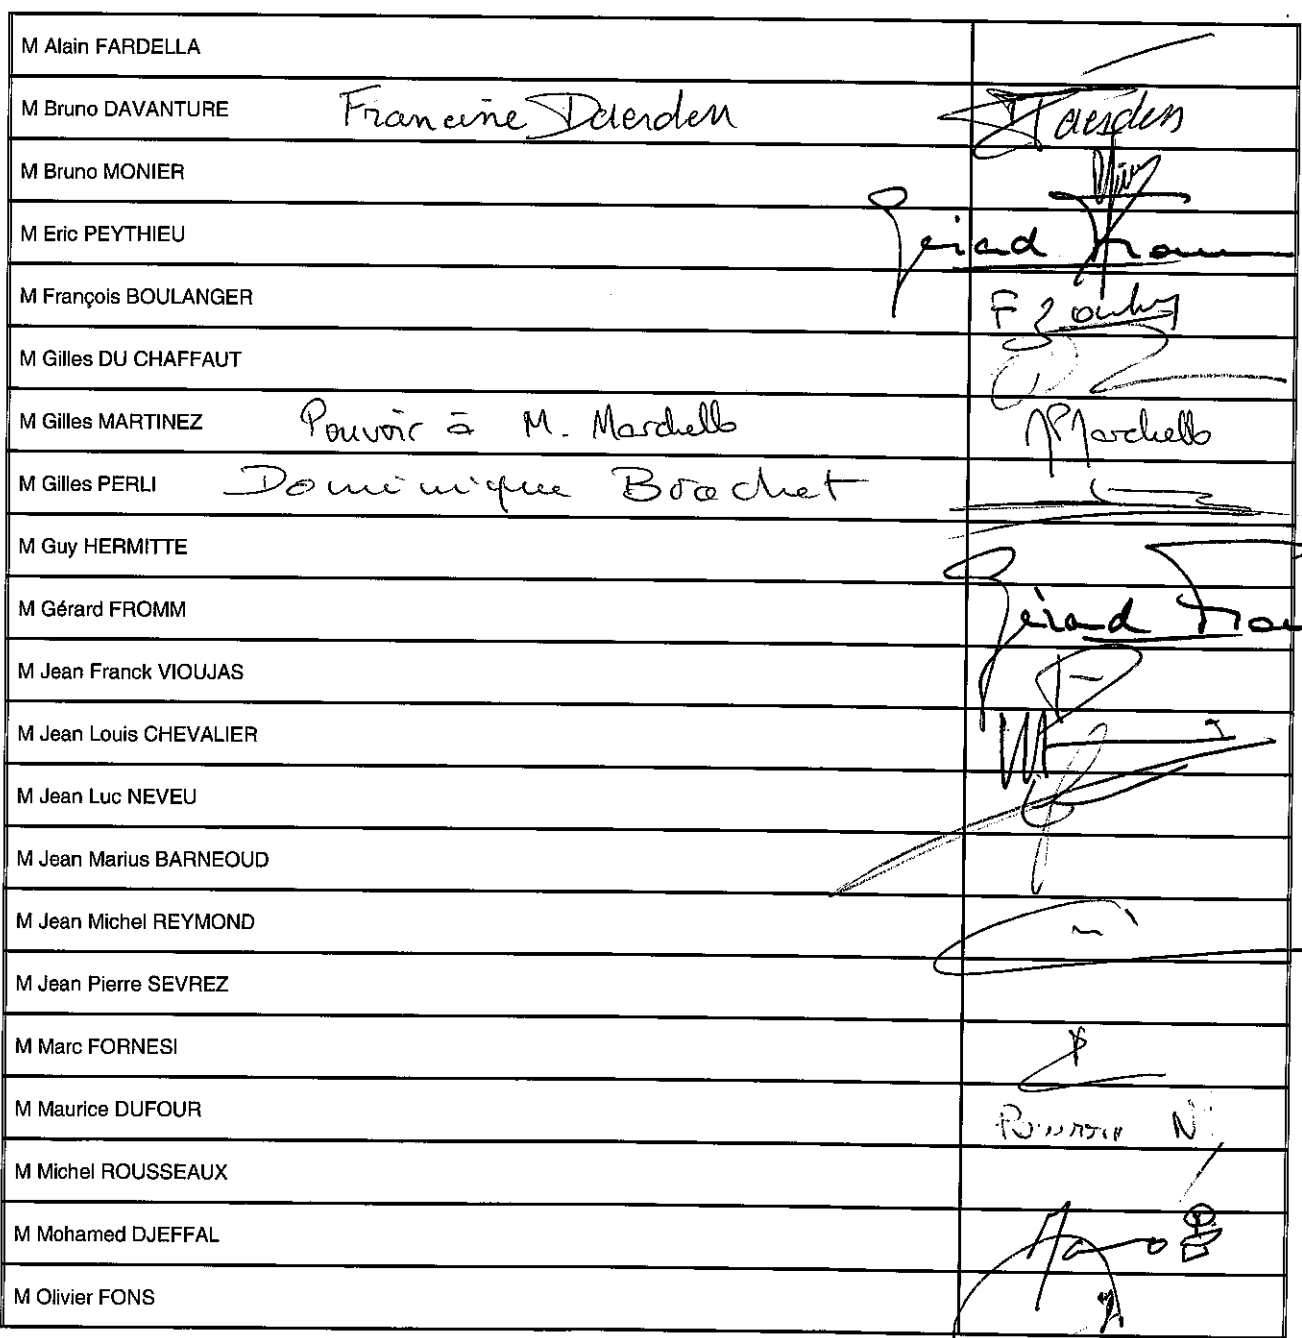 M Alain FARDELLA
M Bruno DAVANTURE Francine Daerden Daerden
M Bruno MONIER
M Eric PEYTHIEU Gérard From
M François BOULANGER F Boulang
M Gilles DU CHAFFAUT
M Gilles MARTINEZ Pouvoir à M. Marchello Marchello
M Gilles PERLI Dominique Brachet
M Guy HERMITTE
M Gérard FROMM Gérard
M Jean Franck VIOUJAS
M Jean Louis CHEVALIER
M Jean Luc NEVEU
M Jean Marius BARNEOUD
M Jean Michel REYMOND
M Jean Pierre SEVREZ
M Marc FORNESI
M Maurice DUFOUR
M Michel ROUSSEAUX
M Mohamed DJEFFAL
M Olivier FONS